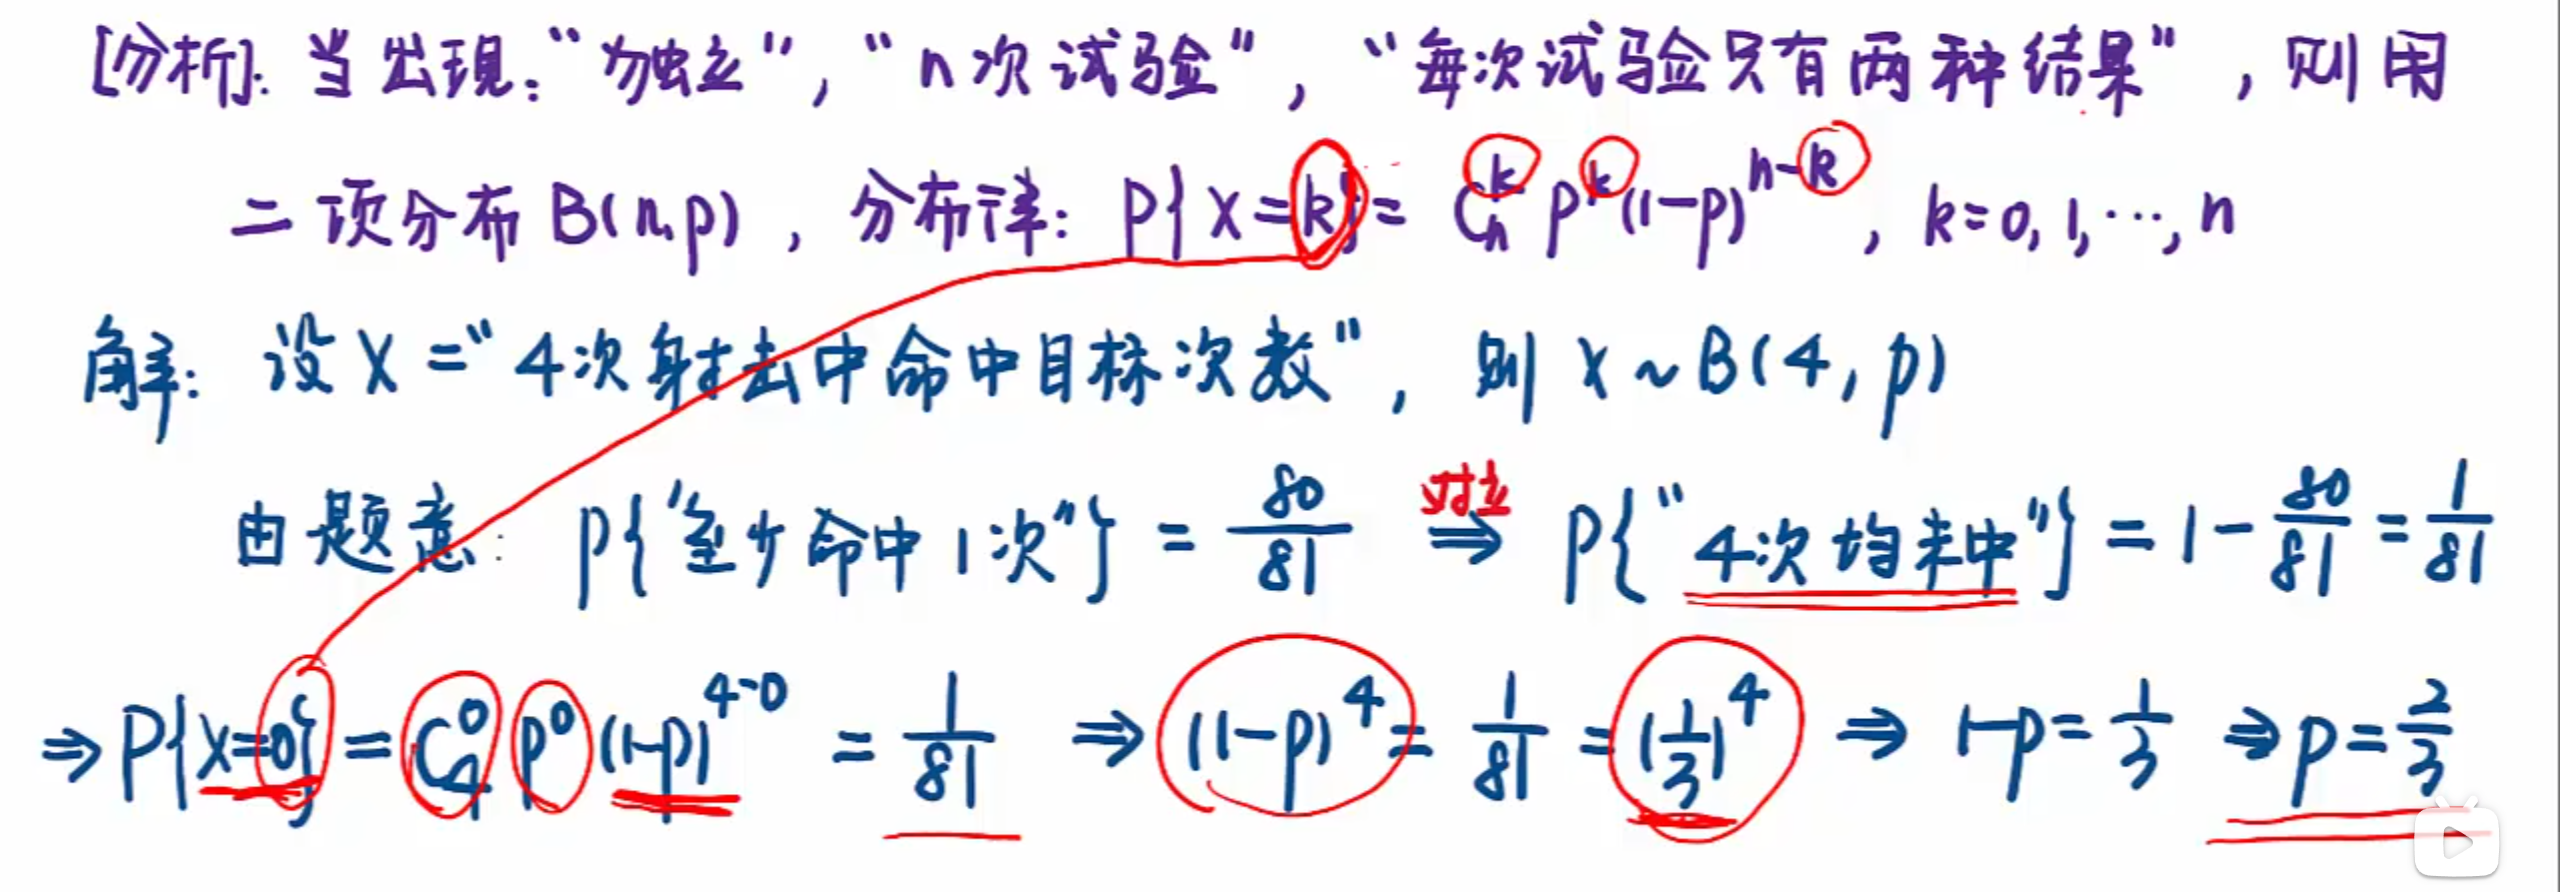 [分析]: 当出现: “独立”, “n次试验”, “每次试验只有两种结果”, 则用
二项分布 B(n,p), 分布律: P{X=k}= C_n^k p^k (1-p)^{n-k}, k=0,1,…,n
解: 设 X=“4次射击中命中目标次数”, 则 X~B(4,p)
由题意: P{“至少命中1次”} = 80/81 对立 ⇒ P{“4次均未中”} = 1-80/81 = 1/81
⇒ P{X=0} = C_4^0 p^0 (1-p)^{4-0} = 1/81 ⇒ (1-p)^4 = 1/81 = (1/3)^4 ⇒ 1-p=1/3 ⇒ p=2/3